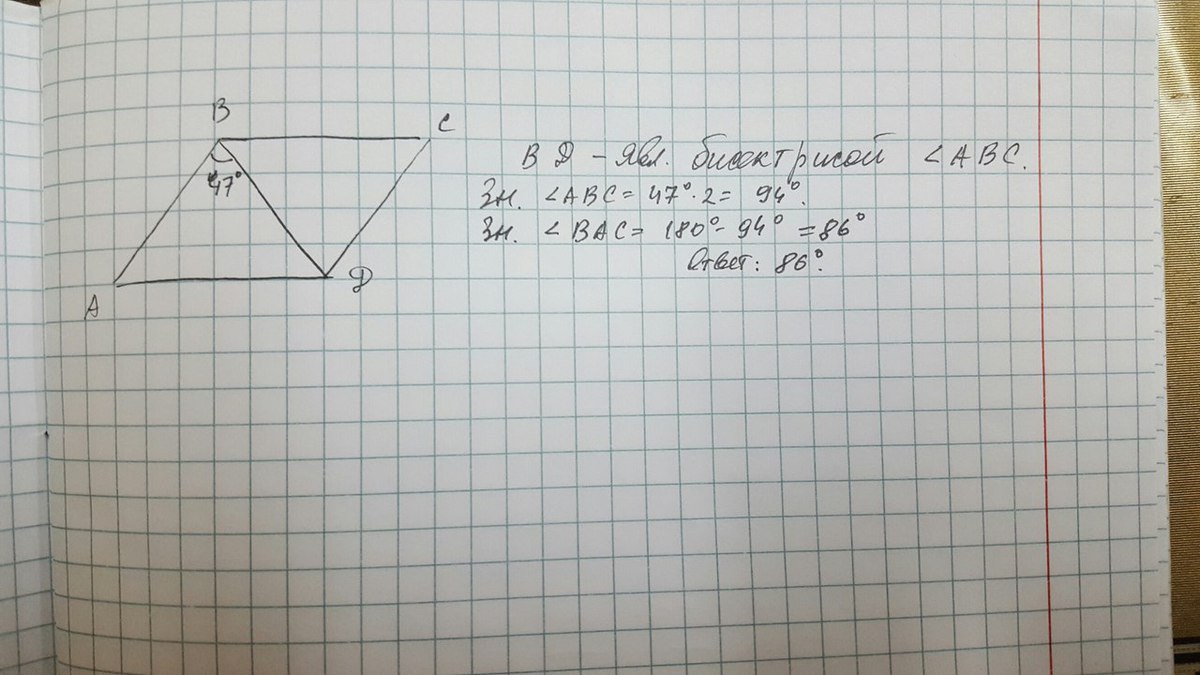 B
C
47°
A
D
ВD – явл. бисектрисой ∠ABC.
Зн. ∠ABC = 47°·2 = 94°.
Зн. ∠BAC = 180° - 94° = 86°
Ответ: 86°.